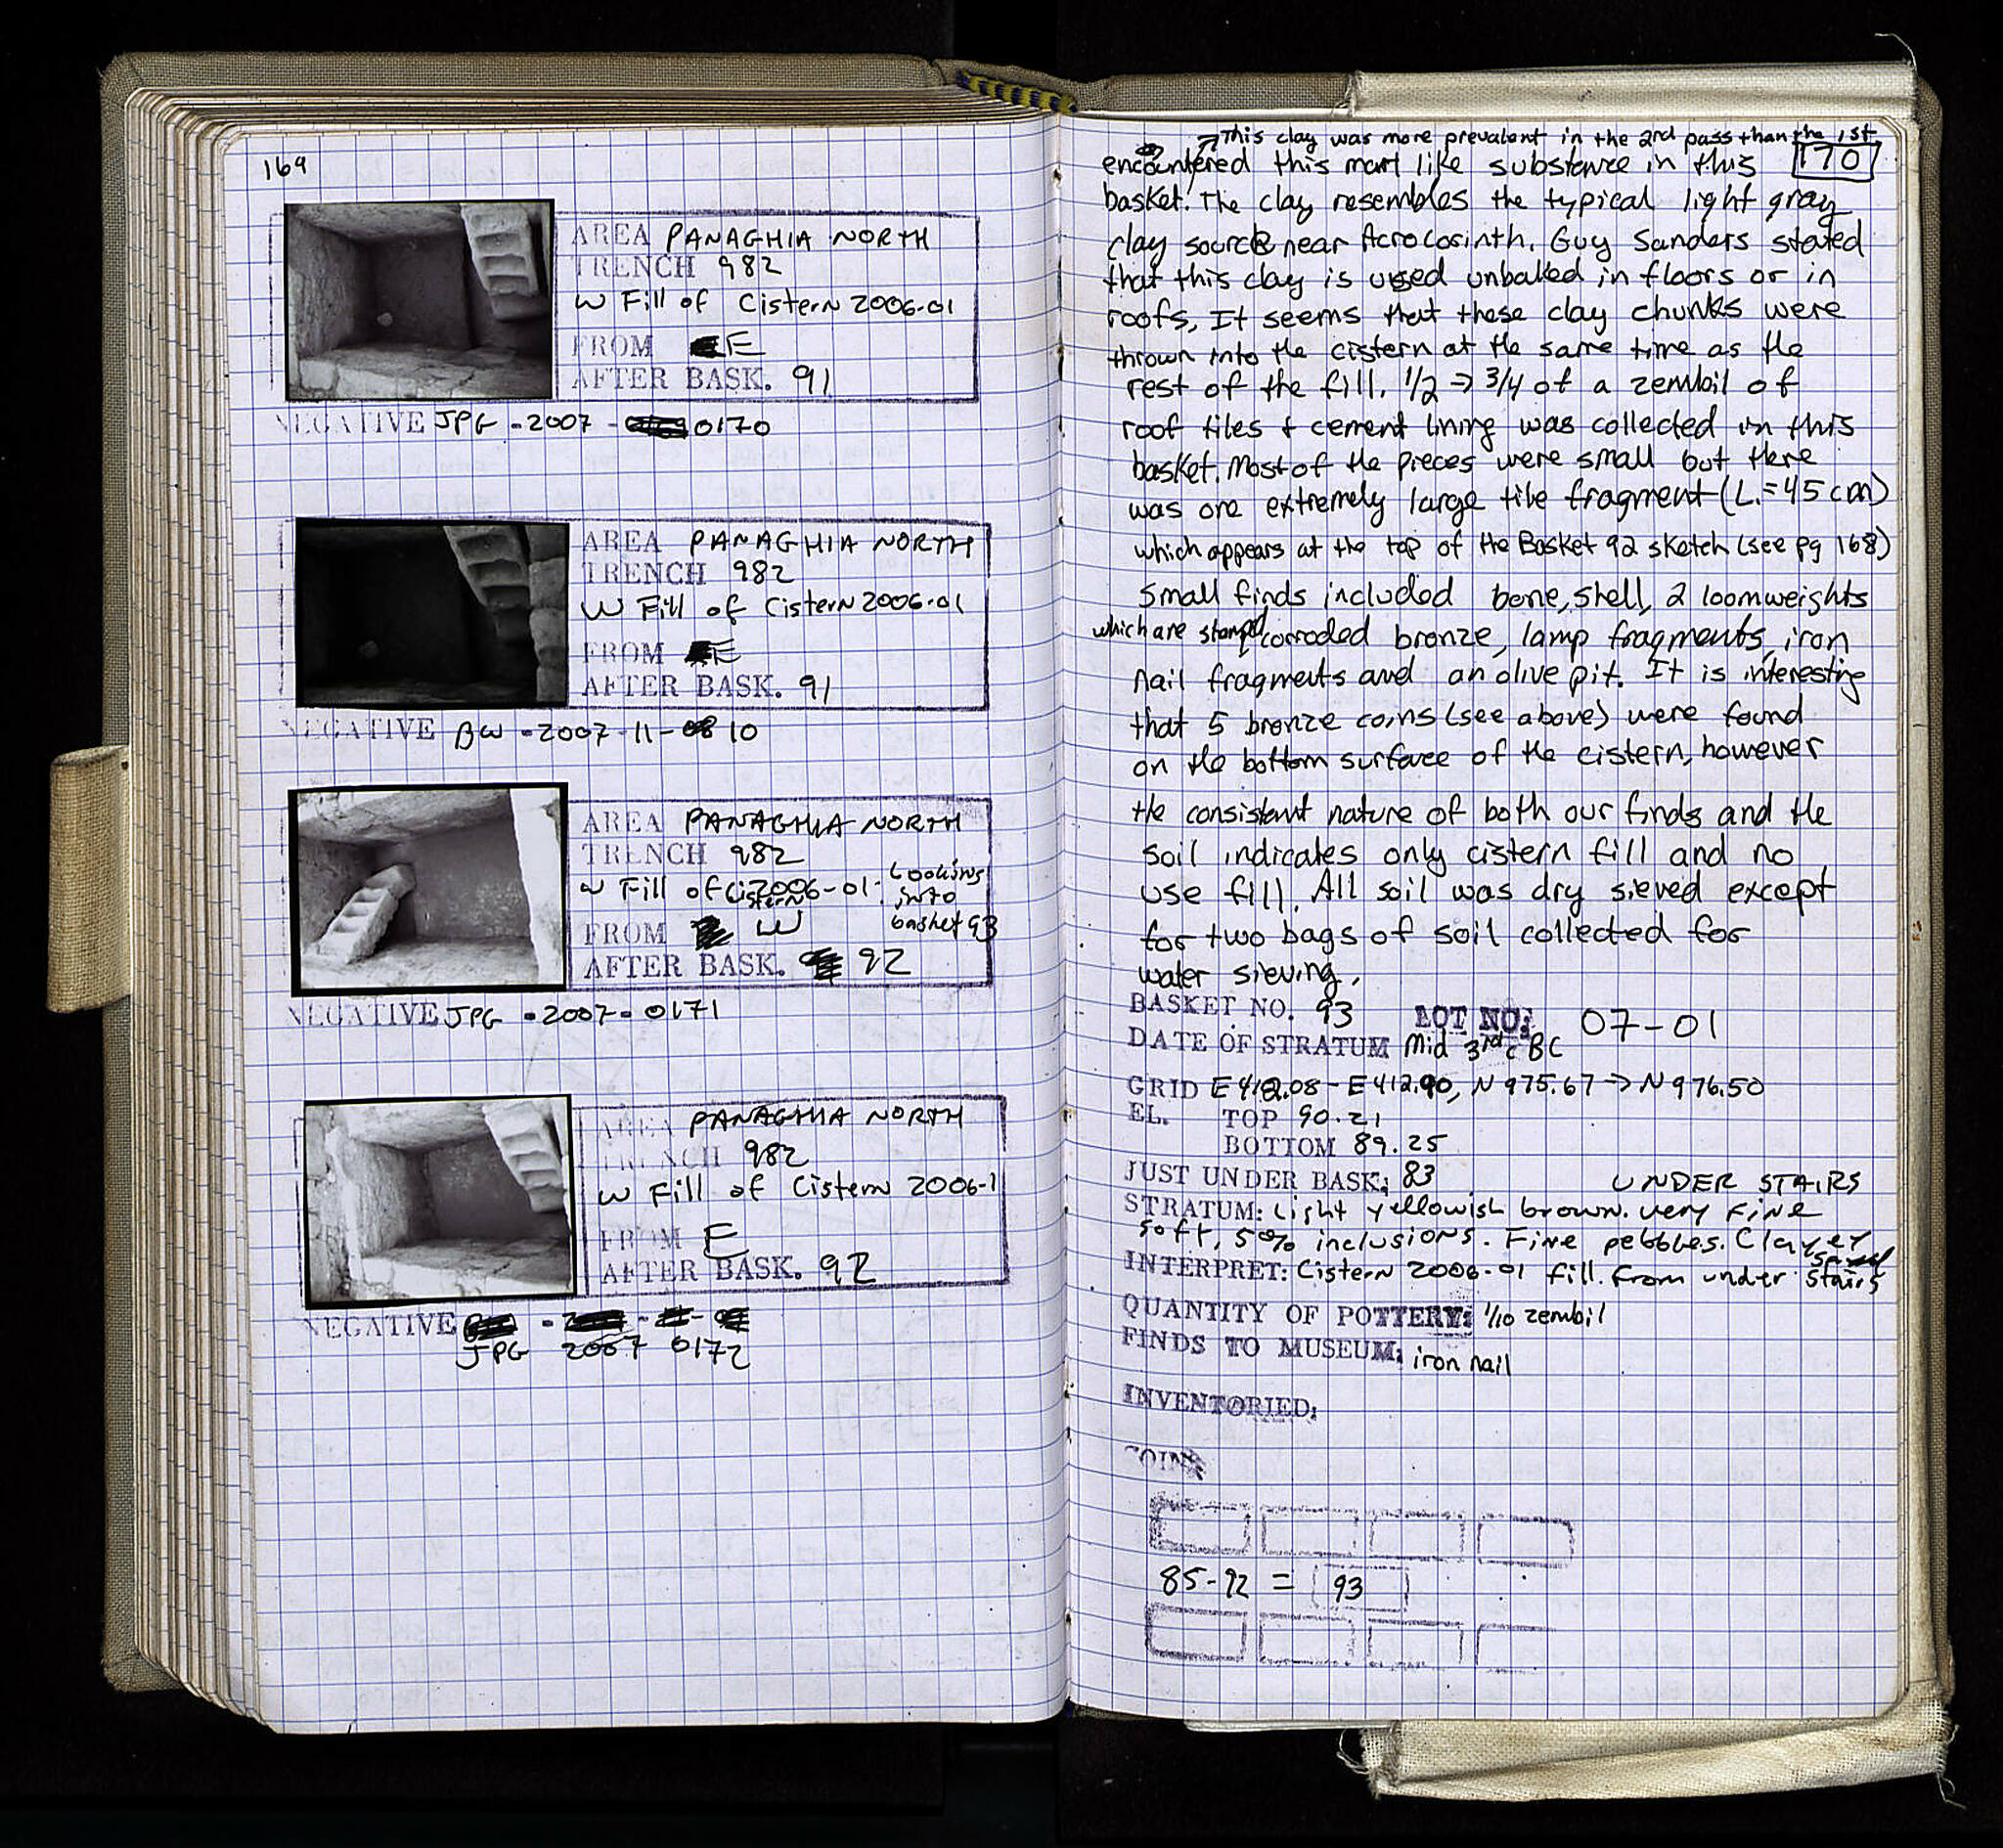 169
AREA PANAGHIA NORTH
TRENCH 982
W Fill of Cistern 2006-01
FROM E
AFTER BASK. 91
NEGATIVE JPG - 2007 - 0170
AREA PANAGHIA NORTH
TRENCH 982
W Fill of Cistern 2006-01
FROM E
AFTER BASK. 91
NEGATIVE BW - 2007 - 11 - 10
AREA PANAGHIA NORTH
TRENCH 982
W Fill of Cistern 2006-01: Looking into basket 93
FROM W
AFTER BASK. 92
NEGATIVE JPG - 2007 - 0171
AREA PANAGHIA NORTH
TRENCH 982
W Fill of Cistern 2006-1
FROM E
AFTER BASK. 92
NEGATIVE
JPG 2007 0172
This clay was more prevalent in the 2nd pass than the 1st
170
encountered this marl like substance in this
basket. The clay resembles the typical light gray
clay source near Acrocorinth. Guy Sanders stated
that this clay is used unbaked in floors or in
roofs. It seems that these clay chunks were
thrown into the cistern at the same time as the
rest of the fill. 1/2 → 3/4 of a zembil of
roof tiles + cement lining was collected in this
basket. Most of the pieces were small but there
was one extremely large tile fragment (L.=45cm)
which appears at the top of the Basket 92 sketch (see pg 168)
Small finds included bone, shell, 2 loomweights
which are stamped, corroded bronze, lamp fragments, iron
nail fragments and an olive pit. It is interesting
that 5 bronze coins (see above) were found
on the bottom surface of the cistern, however
the consistant nature of both our finds and the
soil indicates only cistern fill and no
use fill. All soil was dry sieved except
for two bags of soil collected for
water sieving.
BASKET NO. 93 LOT NO: 07-01
DATE OF STRATUM Mid 3rd c BC
GRID E412.08 - E412.90, N975.67 → N976.50
EL. TOP 90.21
BOTTOM 89.25
JUST UNDER BASK: 83 UNDER STAIRS
STRATUM: Light yellowish brown. very fine
soft, 5% inclusions. Fine pebbles. Clayey sand
INTERPRET: Cistern 2006-01 fill. From under stairs
QUANTITY OF POTTERY: 1/10 zembil
FINDS TO MUSEUM: iron nail
INVENTORIED:
COINS
85-92 = 93